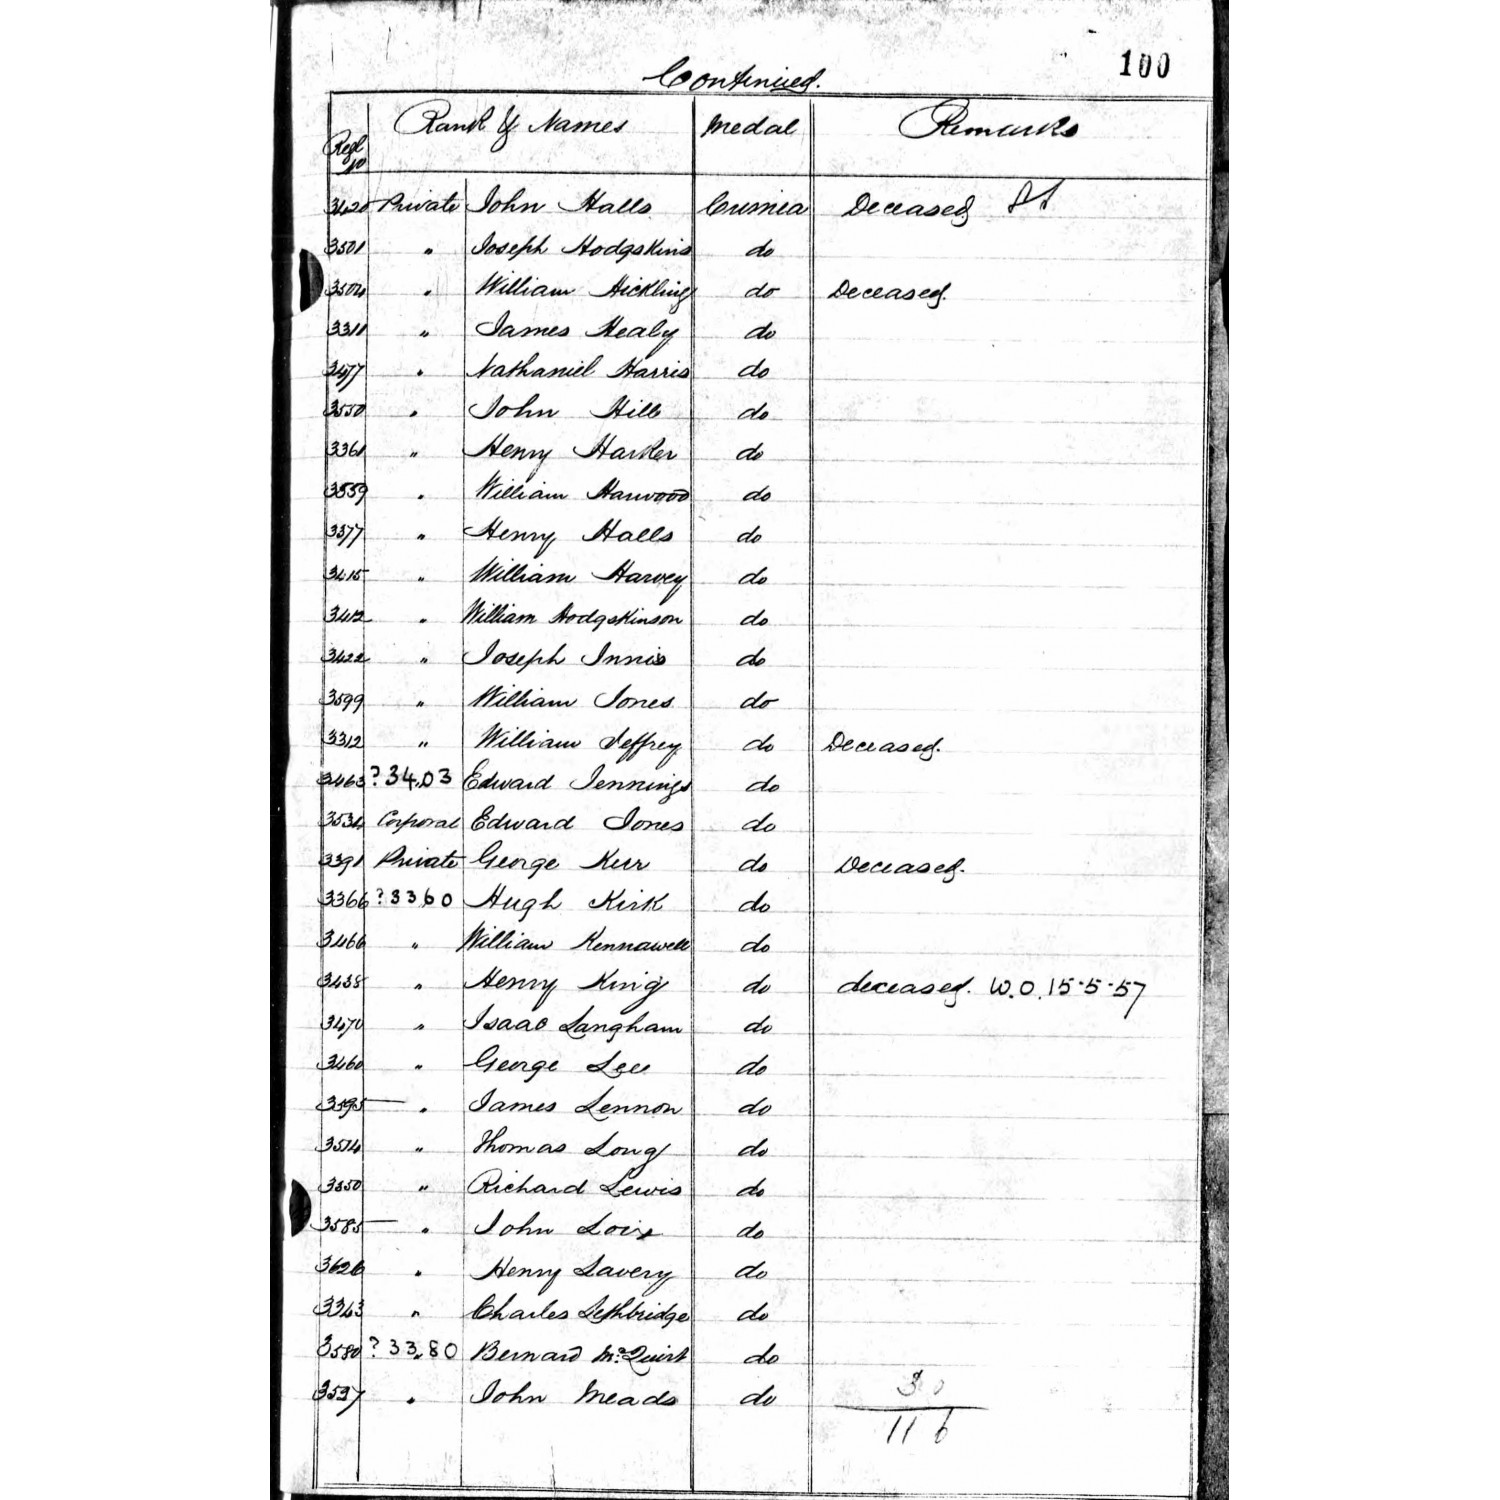 100
Continued.
Regl No Rank & Names Medal Remarks
3420 Private John Halls Crimea Deceased
3501 " Joseph Hodgskins do
3504 " William Hickling do Deceased.
3311 " James Healy do
3477 " Nathaniel Harris do
3550 " John Hill do
3361 " Henry Harker do
3559 " William Harwood do
3377 " Henry Halls do
3415 " William Harvey do
3412 " William Hodgskinson do
3422 " Joseph Innis do
3599 " William Jones do
3312 " William Jeffrey do Deceased.
3463 ? 3403 Edward Jennings do
3534 Corporal Edward Jones do
3391 Private George Kerr do Deceased.
3366 ? 3360 Hugh Kirk do
3466 " William Kennawell do
3438 " Henry King do deceased. W.O. 15-5-57
3470 " Isaac Langham do
3460 " George Lee do
3595 " James Lennon do
3574 " Thomas Long do
3350 " Richard Lewis do
3585 " John do
3626 " Henry Lavery do
3343 " Charles Lethbridge do
3580 ? 33,80 Bernard McQuirt do
3597 " John Meads do
30
116